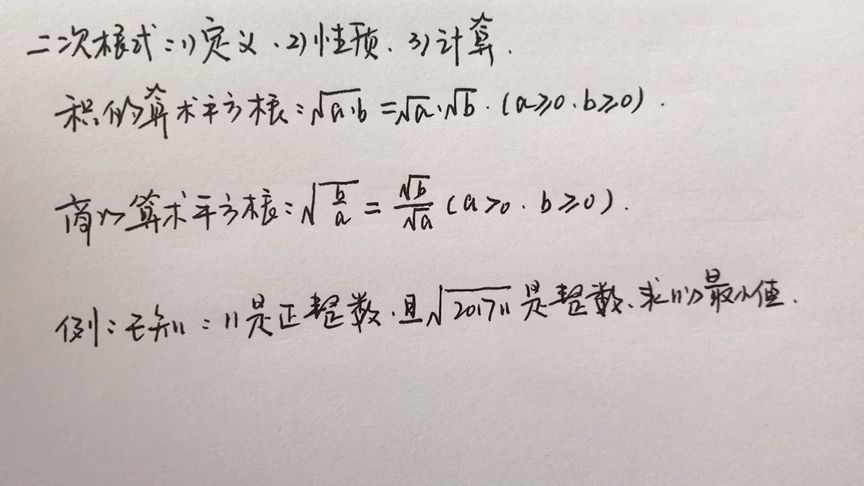 二次根式:1)定义.2)性质.3)计算.
积的算术平方根:√a·b=√a·√b.(a≥0.b≥0).
商的算术平方根:√b/a=√b/√a(a>0.b≥0).
例:已知n:n是正整数.且√2017n是整数.求n的最小值.